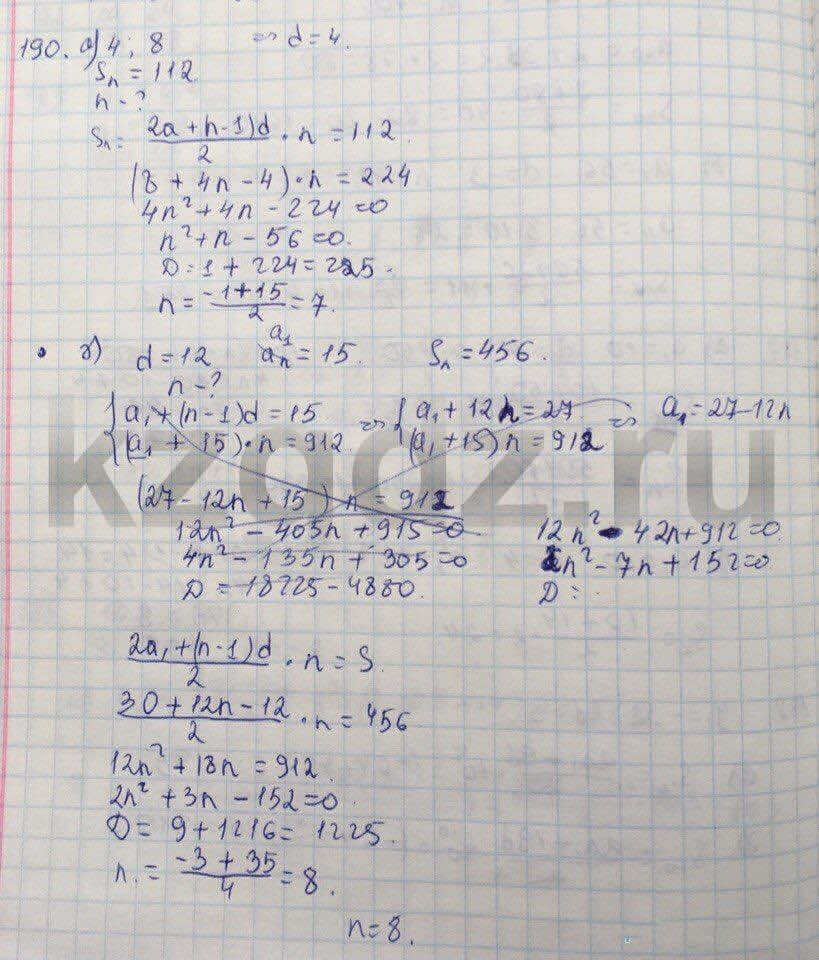 190. а) 4; 8 => d = 4.
Sn = 112
n - ?
Sn = (2a + n-1)d / 2 · n = 112.
(8 + 4n - 4) · n = 224
4n² + 4n - 224 = 0
n² + n - 56 = 0.
D = 1 + 224 = 225.
n = (-1 + 15) / 2 = 7.
a₁
• г) d = 12 an = 15. Sn = 456.
n - ?
{ a₁ + (n-1)d = 15 => { a₁ + 12n = 27 => a₁ = 27 - 12n
(a₁ + 15) · n = 912 (a₁ + 15) n = 912
(27 - 12n + 15) n = 912
12n² - 405n + 915 = 0 12n² - 42n + 912 = 0.
4n² - 135n + 305 = 0 2n² - 7n + 152 = 0
D = 18225 - 4880. D = .
2a₁ + (n-1)d / 2 · n = S.
30 + 12n - 12 / 2 · n = 456
12n² + 18n = 912.
2n² + 3n - 152 = 0.
D = 9 + 1216 = 1225.
n. = -3 + 35 / 4 = 8.
n = 8.
kzgdz.ru